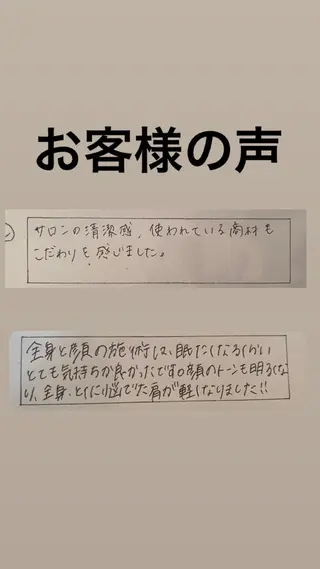 お客様の声
サロンの清潔感、使われている商材も
こだわりを感じました。
全身と顔の施術は、眠たくなるくらい
とても気持ちが良かったです。顔のトーンも明るくな
り、全身、とくに悩んでた肩が軽くなりました!!